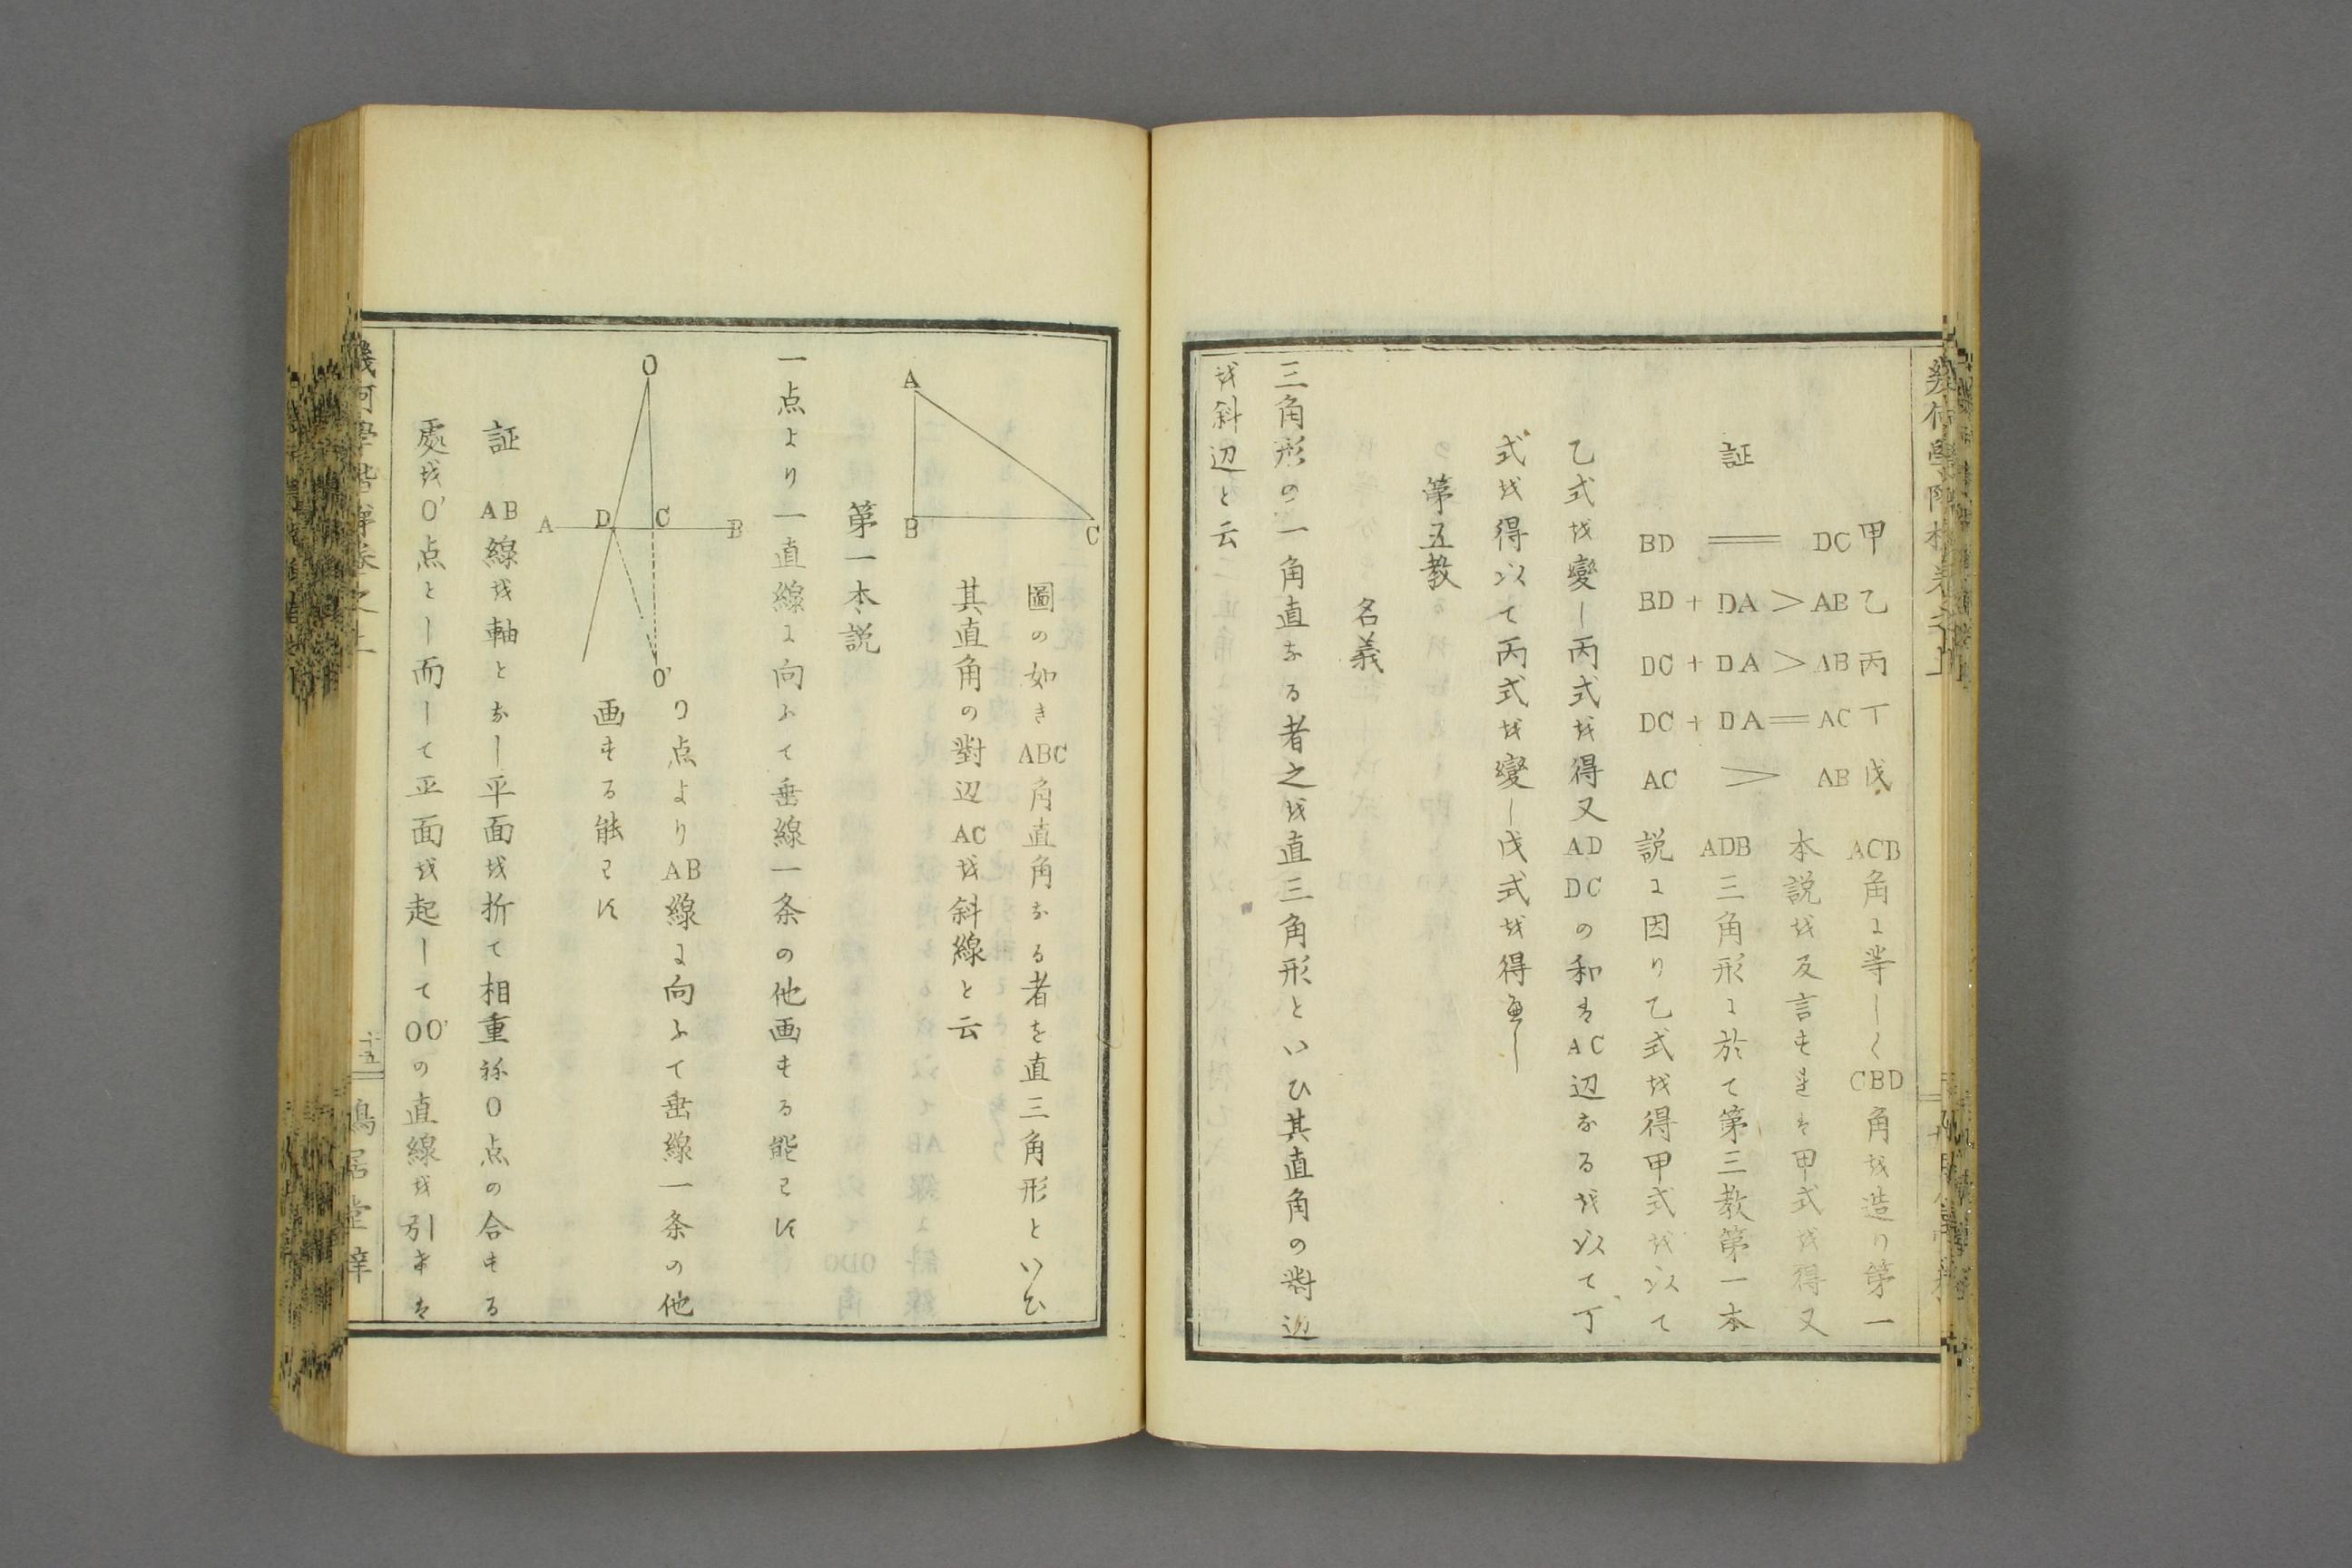 証
甲 BD = DC
乙 BD + DA > AB
丙 DC + DA > AB
丁 DC + DA = AC
戊 AC > AB
ACB角ニ等しくCBD角を造り第一
本説を反言すれは甲式を得又
ADB三角形ニ於て第三教第一本
説ニ因り乙式を得甲式を以て
乙式を變し丙式を得又ADDCの和はAC辺なるを以て丁
式を得以て丙式を變し戊式を得べし
第五教
名義
三角形の一角直なる者之を直三角形といひ其直角の對辺
を斜辺と云
A
B
C
圖の如きABC角直角なる者を直三角形といひ
其直角の對辺ACを斜線と云
第一本説
一点より一直線ニ向ふて垂線一条の他画する能はす
O
A
D
C
B
O'
O点よりAB線ニ向ふて垂線一条の他
画する能はす
証 AB線を軸となし平面を折て相重ねO点の合する
處をO'点とし而して平面を起してOO'の直線を引きは
幾何學階梯卷之上
十五
鳴居堂梓